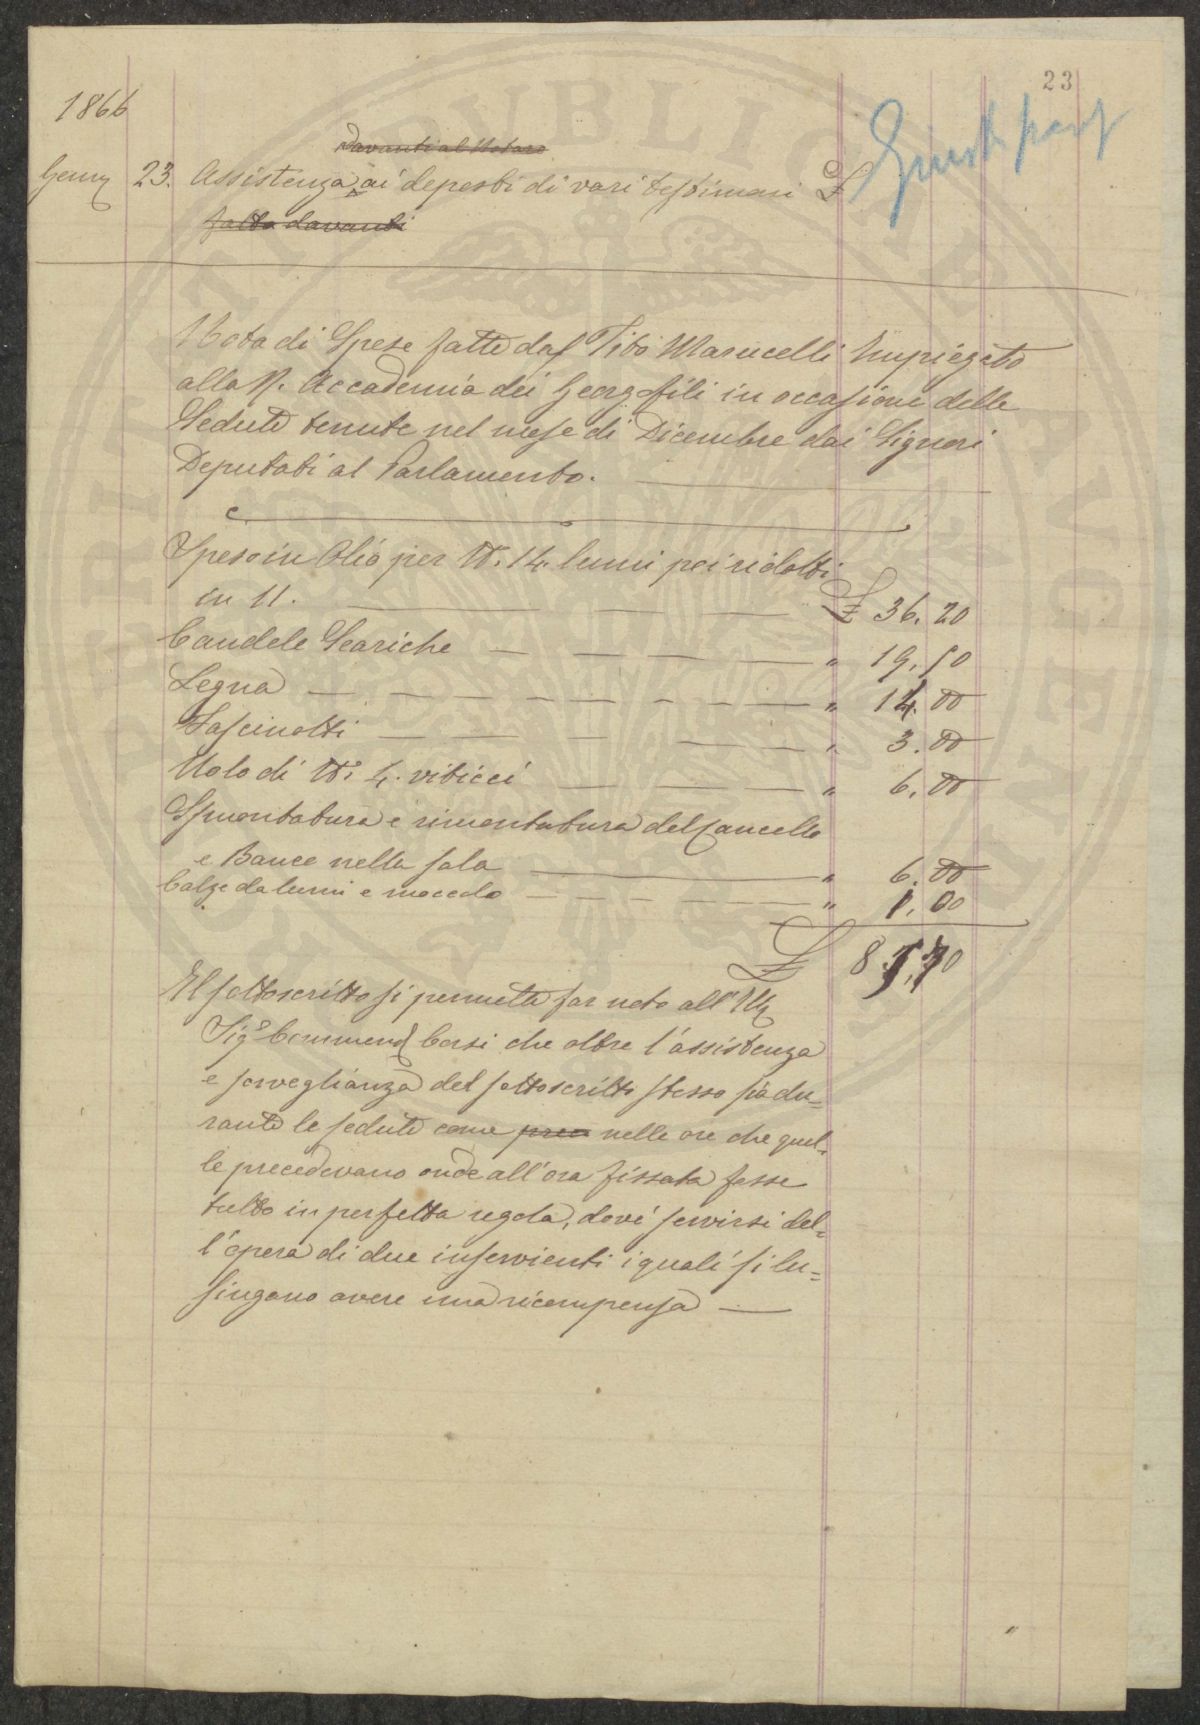 23
1866
Davanti al Notaro
Genn 23. Assistenza ai deposti di vari testimoni £
fatta davanti
Nota di Spese fatte da Tito Marucelli Impiegato
alla R. Accademia dei Georgofili in occasione delle
Sedute tenute nel mese di Dicembre dai Signori
Deputati al Parlamento.
Spesa in Olio per N. 14. lumi poi ridotti
in 11. £ 36. 20
Candele Steariche " 19. 50
Legna " 14. 00
Fascinotti " 3. 00
Nolo di N. 4. viticci " 6. 00
Smontatura e rimontatura del Cancello
e Bance nella sala " 6. 00
Calze da lumi e moccolo " 1. 00
£ 8
Il sottoscritto si permette far noto all' Ill
Sigr Commend Corsi che oltre l'assistenza
e sorveglianza del sottoscritto stesso sia du=
rante le sedute come nelle ore che quel=
le precedevano onde all'ora fissata fosse
tutto in perfetta regola, dové servirsi del=
l'opera di due inservienti i quali si lu=
singano avere una ricompensa